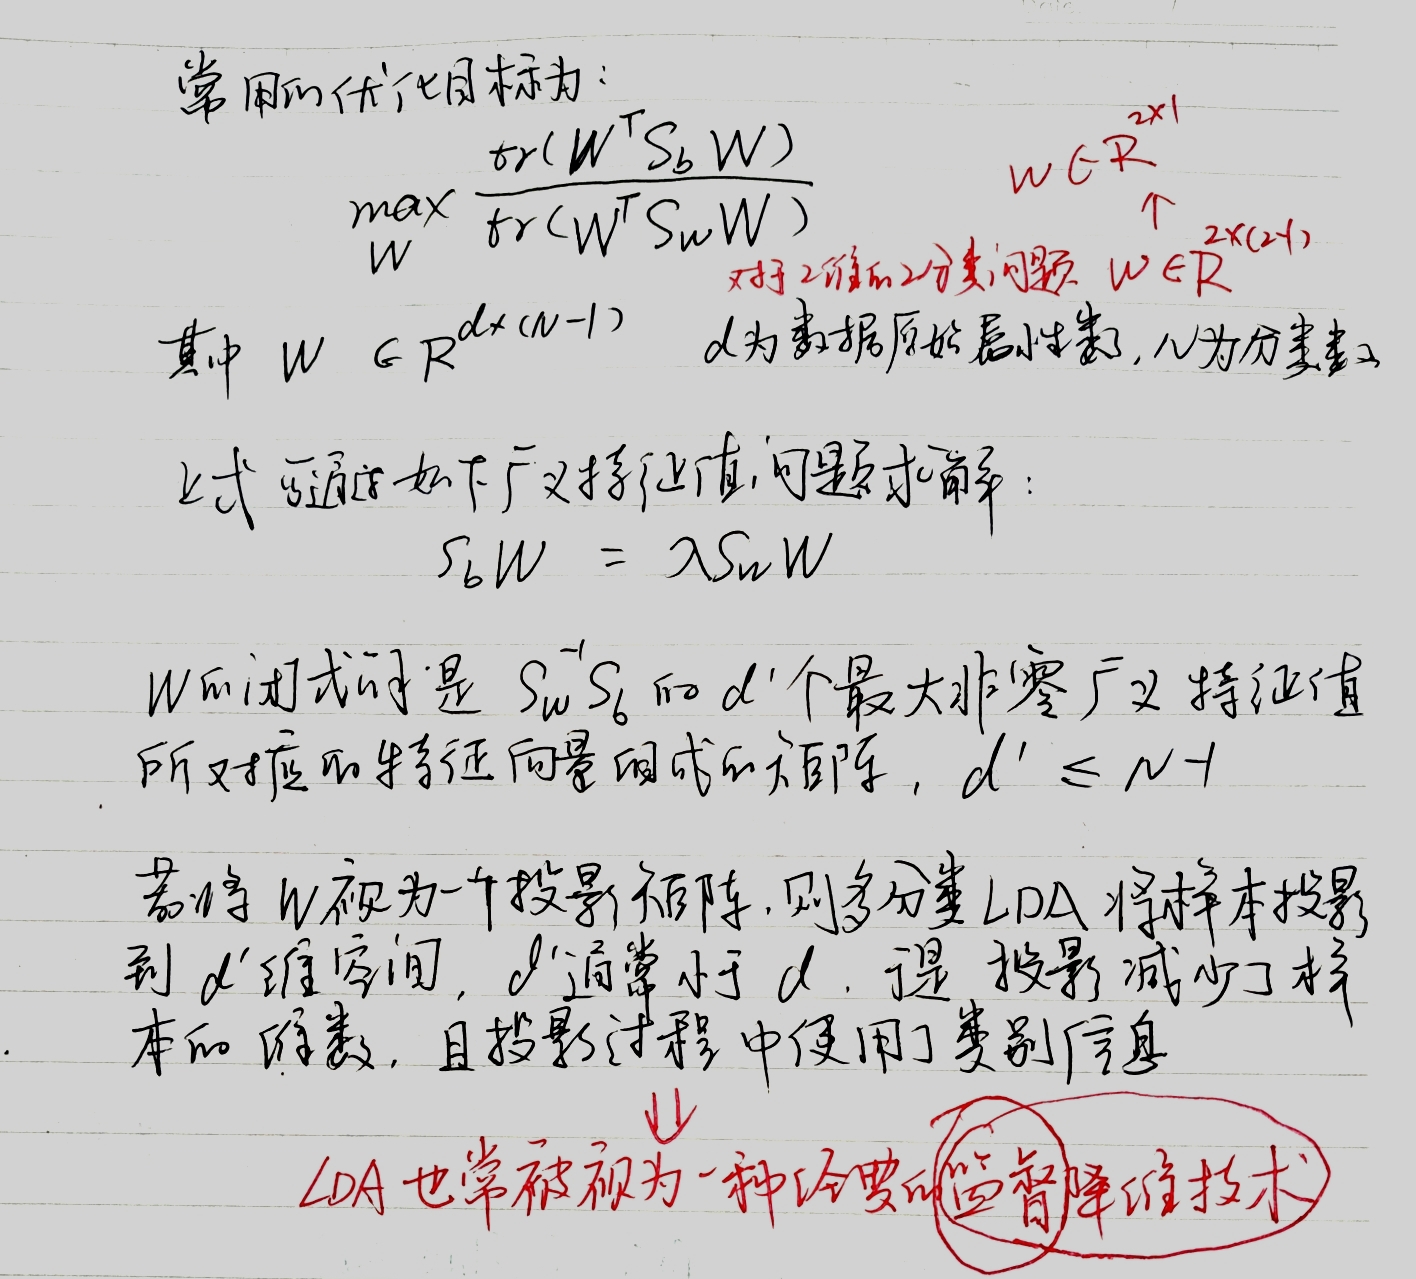 常用的优化目标为：
max_W tr(W^T S_b W) / tr(W^T S_w W)
W∈R^{2×1}
↑
对于2维的2分类问题 W∈R^{2×(2-1)}
其中 W ∈ R^{d×(N-1)} d为数据原始属性数，N为分类数
上式可通过如下广义特征值问题求解：
S_b W = λS_w W
W的闭式解是 S_w^{-1} S_b 的 d' 个最大非零广义特征值
所对应的特征向量组成的矩阵，d' ≤ N-1
若将 W 视为一个投影矩阵，则多分类LDA将样本投影
到 d' 维空间，d'通常小于 d．于是 投影减少了样
本的维数，且投影过程中使用了类别信息
⇓
LDA也常被视为一种经典的监督降维技术